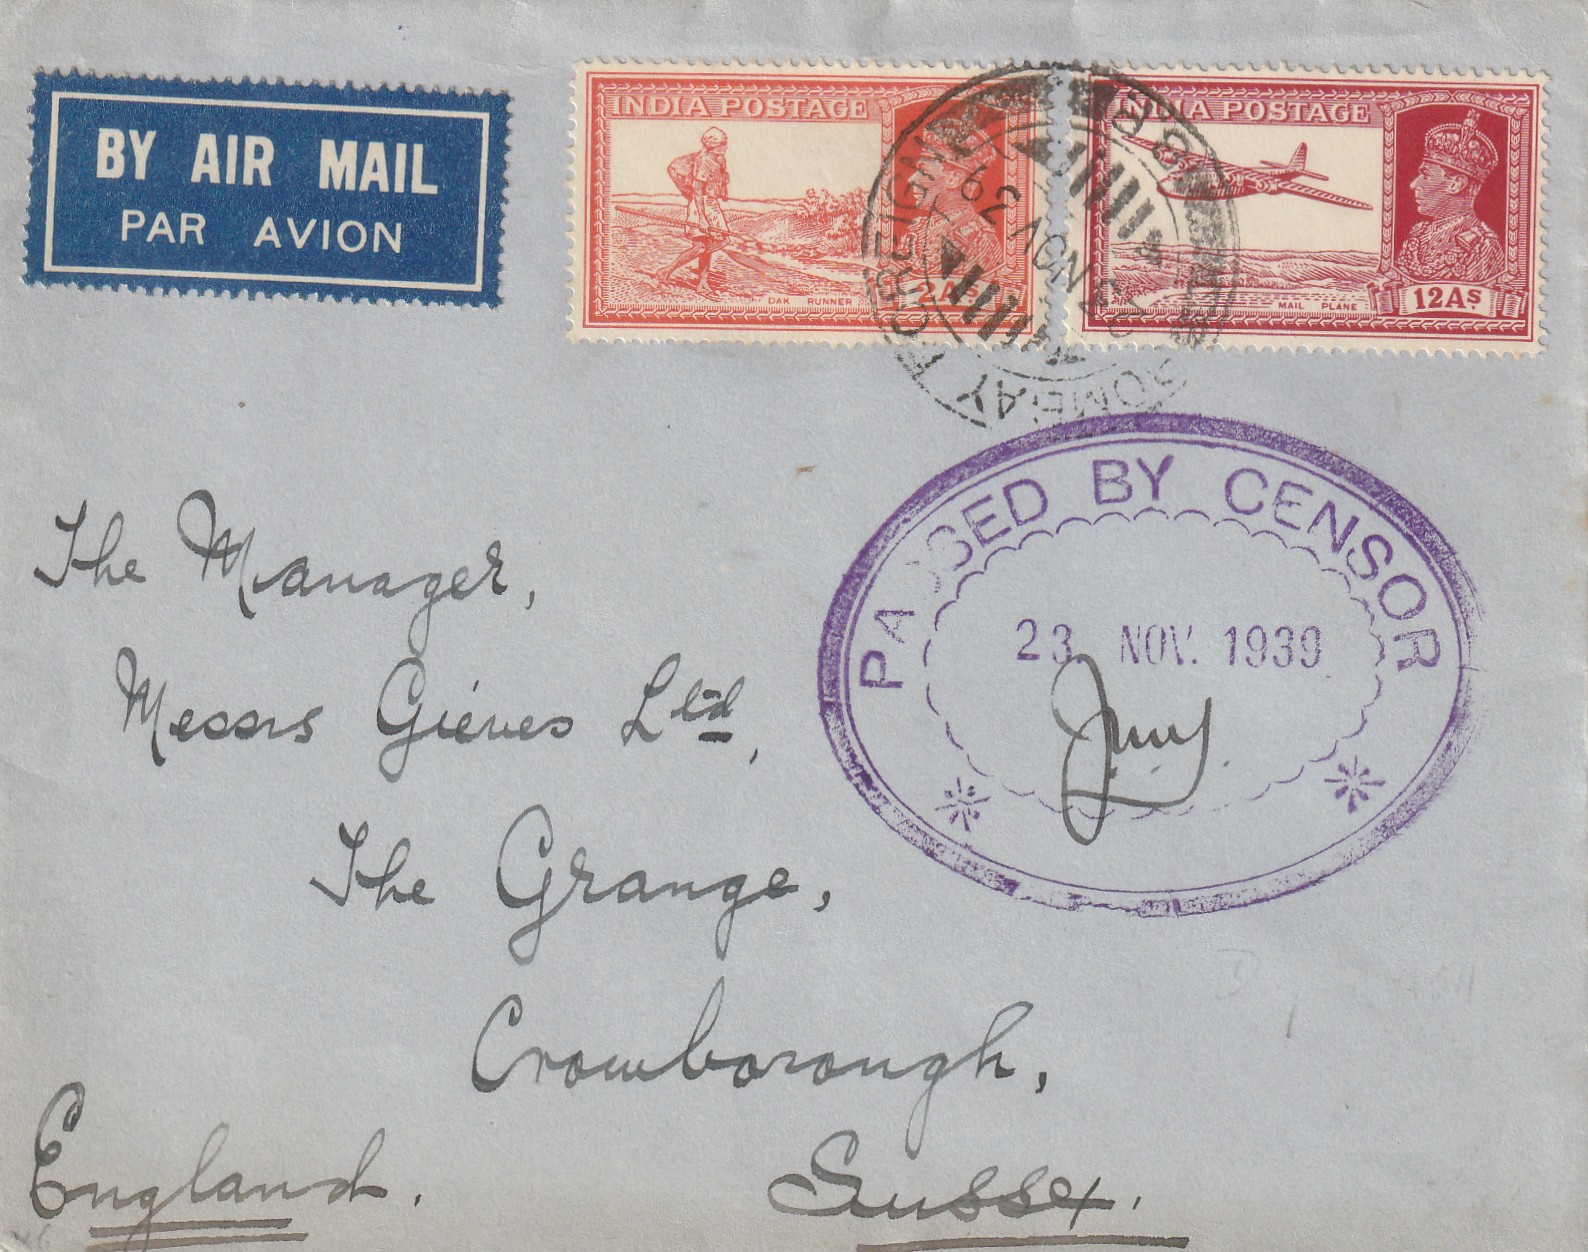 BY AIR MAIL
PAR AVION
INDIA POSTAGE
DAK RUNNER
2As
INDIA POSTAGE
MAIL PLANE
12As
BOMBAY FOREIGN
NOV 39
PASSED BY CENSOR
23 NOV. 1939
The Manager,
Messrs Gieves Ltd,
The Grange,
Crowborough,
Sussex.
England.